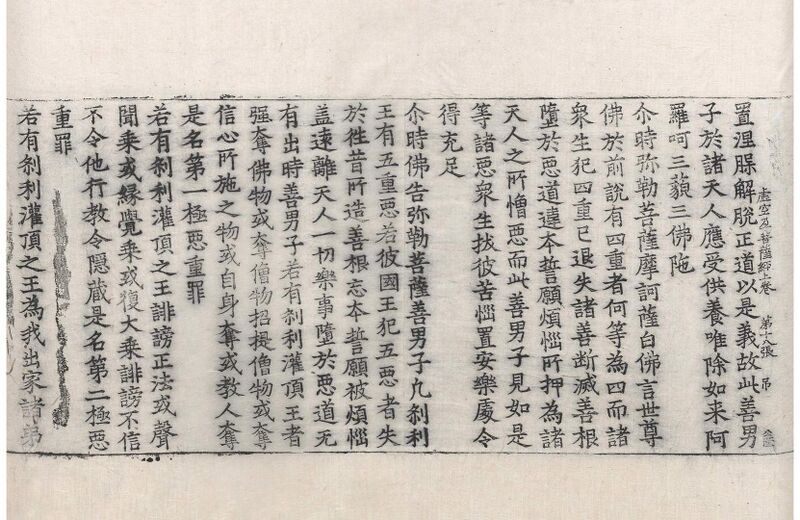 置涅槃解脫正道以是義故此善男
虛空孕菩薩經上卷 第十八張 吊
子於諸天人應受供養唯除如来阿
羅呵三藐三佛陁
尒時弥勒菩薩摩訶薩白佛言世尊
佛於前說有四重者何等為四而諸
衆生犯四重已退失諸善斷滅善根
墮於惡道違夲誓願煩惱所押為諸
天人之所憎惡而此善男子見如是
等諸惡衆生拔彼苦惱置安樂處令
得充足
尒時佛告弥勒菩薩善男子凢剎利
王有五重惡若彼國王犯五惡者失
於徃昔所造善根忘夲誓願被煩惱
盖遠離天人一切樂事墮於惡道无
有出時善男子若有剎利灌頂王者
强奪佛物或奪僧物招提僧物或奪
信心所施之物或自身奪或教人奪
是名第一極惡重罪
若有剎利灌頂之王誹謗正法或聲
聞乘或縁覺乘或復大乘誹謗不信
不令他行教令隐蔵是名第二極惡
重罪
若有剎利灌頂之王為我出家諸弟